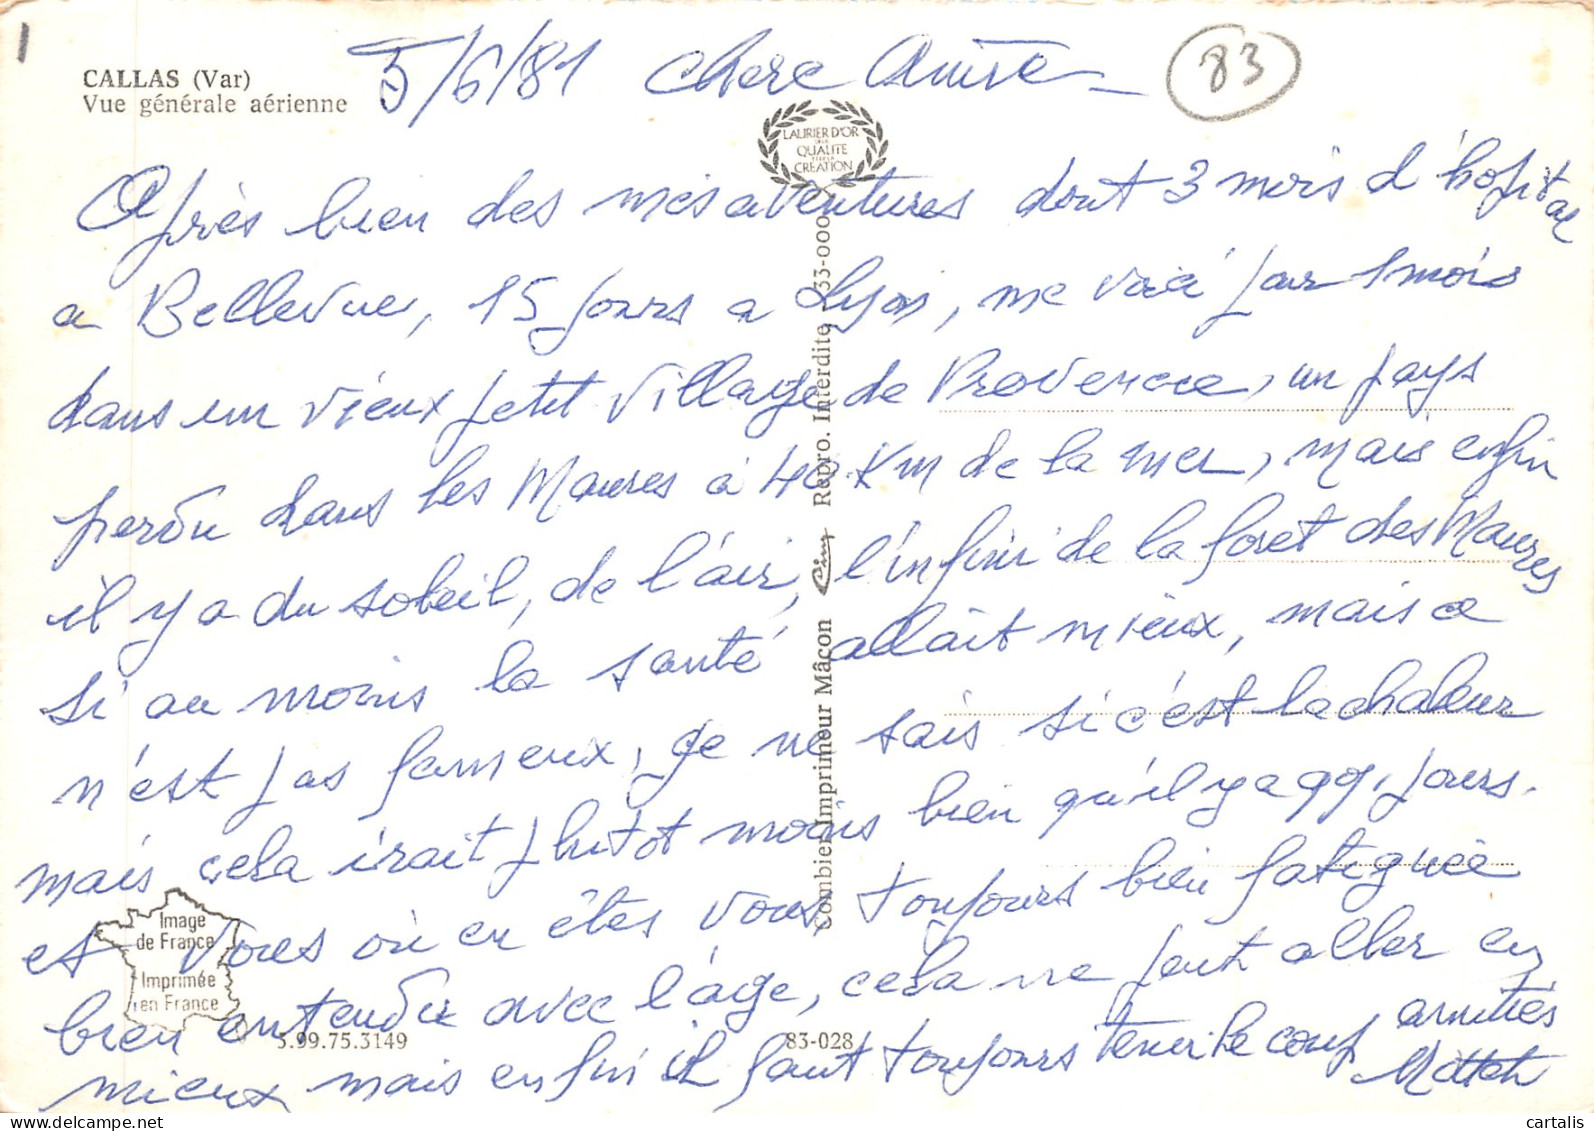 CALLAS (Var)
Vue générale aérienne
5/6/81 Chere Amie -
83
LAURIER D'OR
QUALITE
CREATION
Après bien des mésaventures dont 3 mois d'hopital
a Bellevue, 15 jours a Lyon, me voici pour 1 mois
dans un vieux petit village de Provence, un pays
perdu dans les Maures à 40 Km de la mer, mais enfin
il y a du soleil, de l'air, l'infini de la foret des Maures
si au moins la santé allait mieux, mais ce
n'est pas fameux, je ne sais si c'est la chaleur
mais cela irait plutot moins bien qu'il y a qq. jours.
et vous où en êtes vous toujours bien fatiguée
bien entendu avec l'âge, cela ne peut aller en
mieux mais enfin il faut toujours tenir le coup amitiés
Image
de France
Imprimée
en France
3.99.75.3149
83-028
Combier Imprimeur Mâcon Cim Repro. Interdite 33-000
cartalis.com